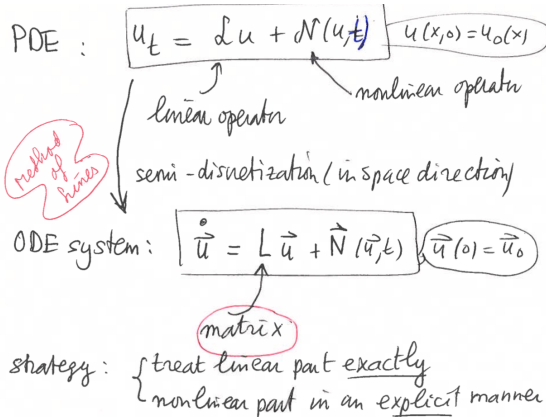 PDE : u_t = ℒu + 𝒩(u,t) u(x,0) = u_0(x)
linear operator
nonlinear operator
method of lines
semi-discretization (in space direction)
ODE system: \dot{\vec{u}} = L \vec{u} + \vec{N}(\vec{u},t), \vec{u}(0) = \vec{u}_0
matrix
strategy : { treat linear part exactly
nonlinear part in an explicit manner